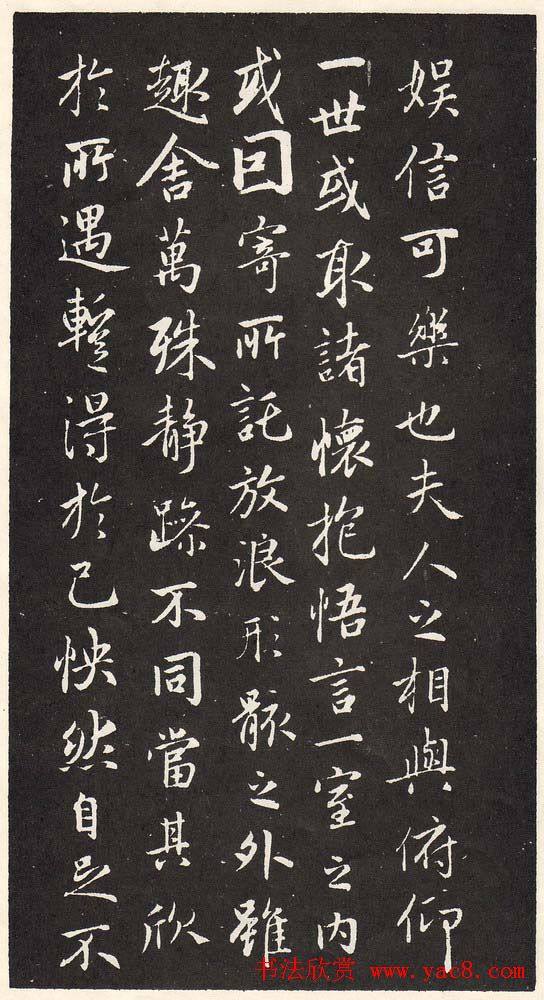 娛信可樂也夫人之相與俯仰
一世或取諸懷抱悟言一室之內
或因寄所託放浪形骸之外雖
趣舍萬殊靜躁不同當其欣
於所遇暫得於己怏然自足不
书法欣赏 www.yac8.com